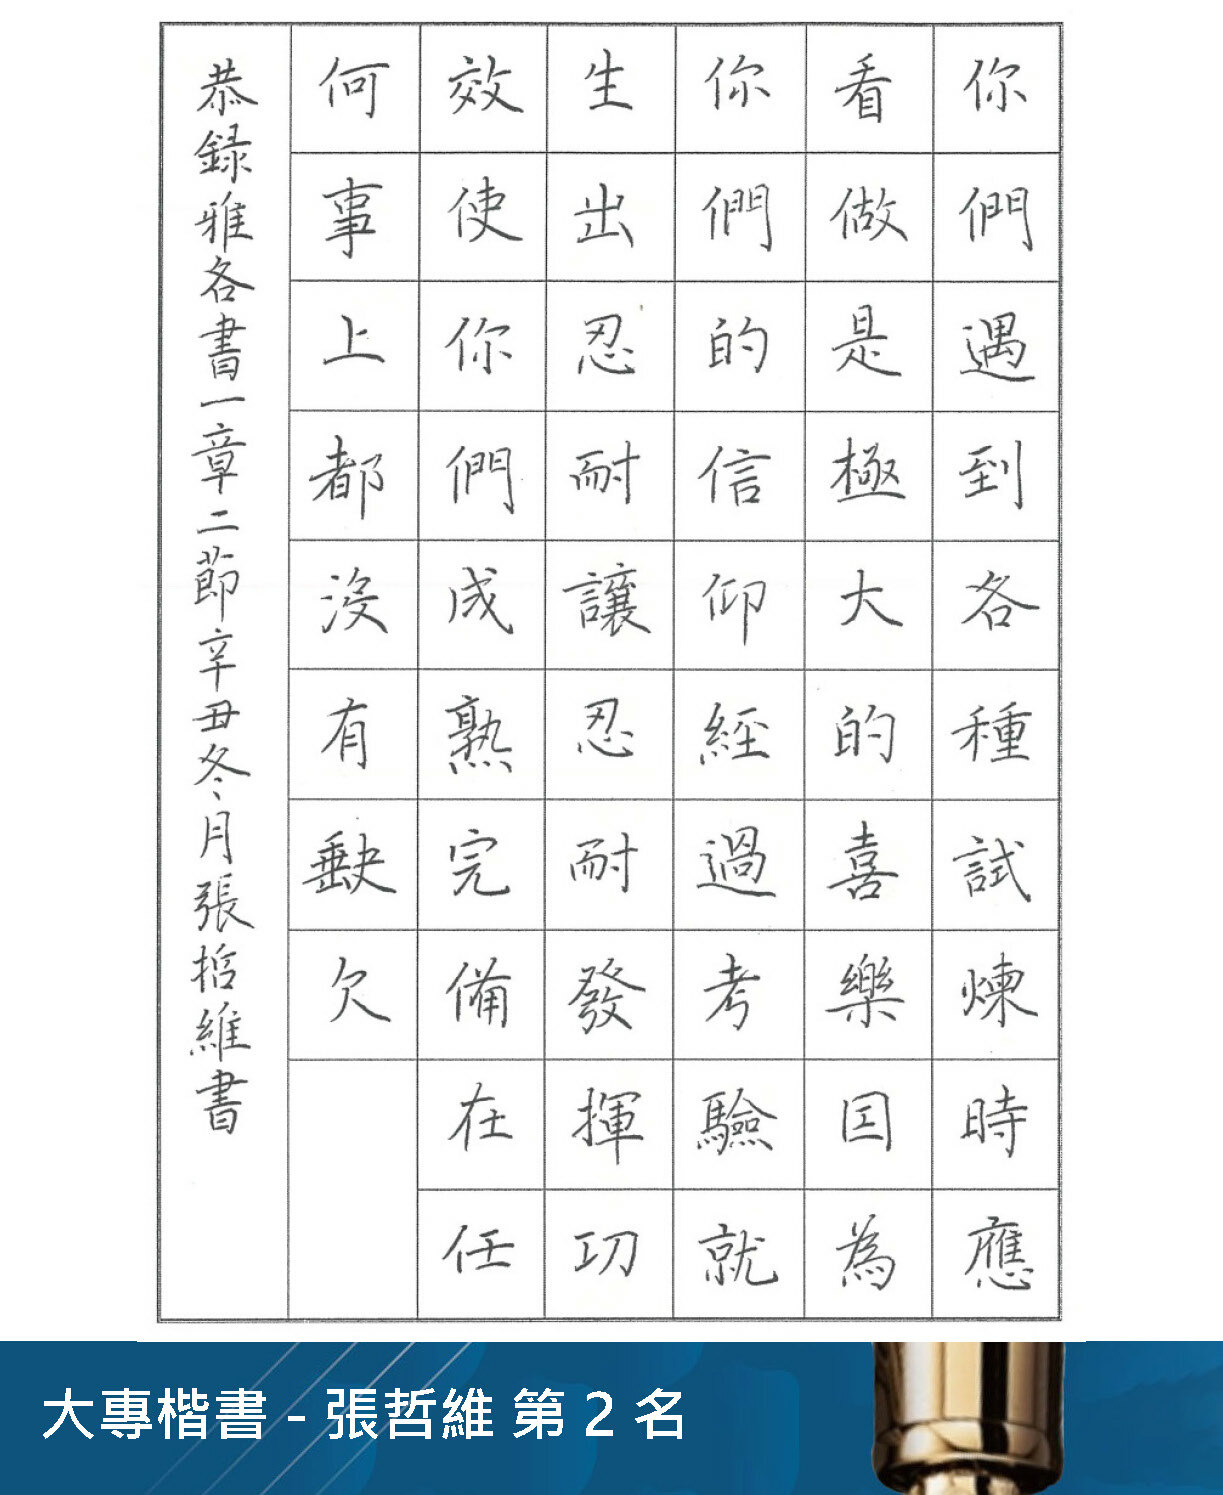 你們遇到各種試煉時應
看做是極大的喜樂因為
你們的信仰經過考驗就
生出忍耐讓忍耐發揮功
效使你們成熟完備在任
何事上都沒有缺欠
恭録雅各書一章二節辛丑冬月張哲維書
大專楷書 - 張哲維 第 2 名